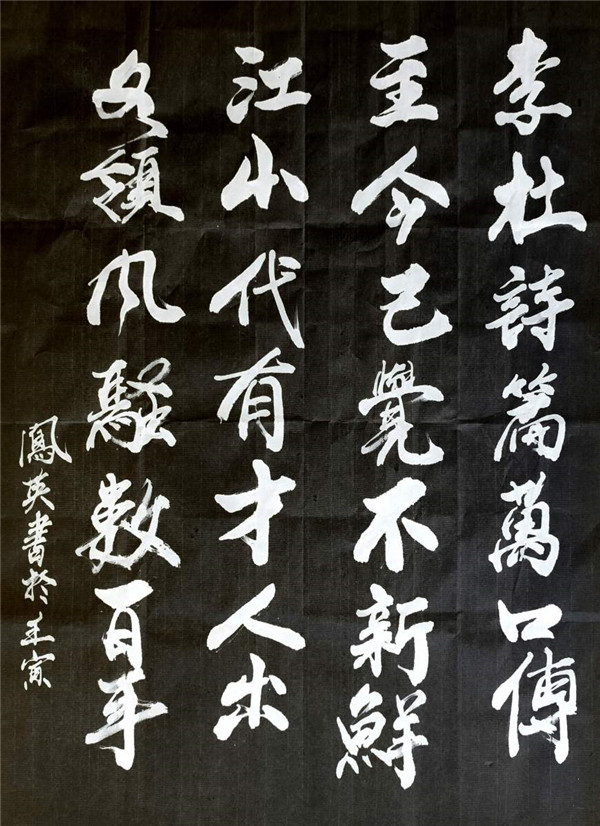 李杜詩篇萬口傳
至今已覺不新鮮
江山代有才人出
各領风騷數百年
鳳英書於壬寅